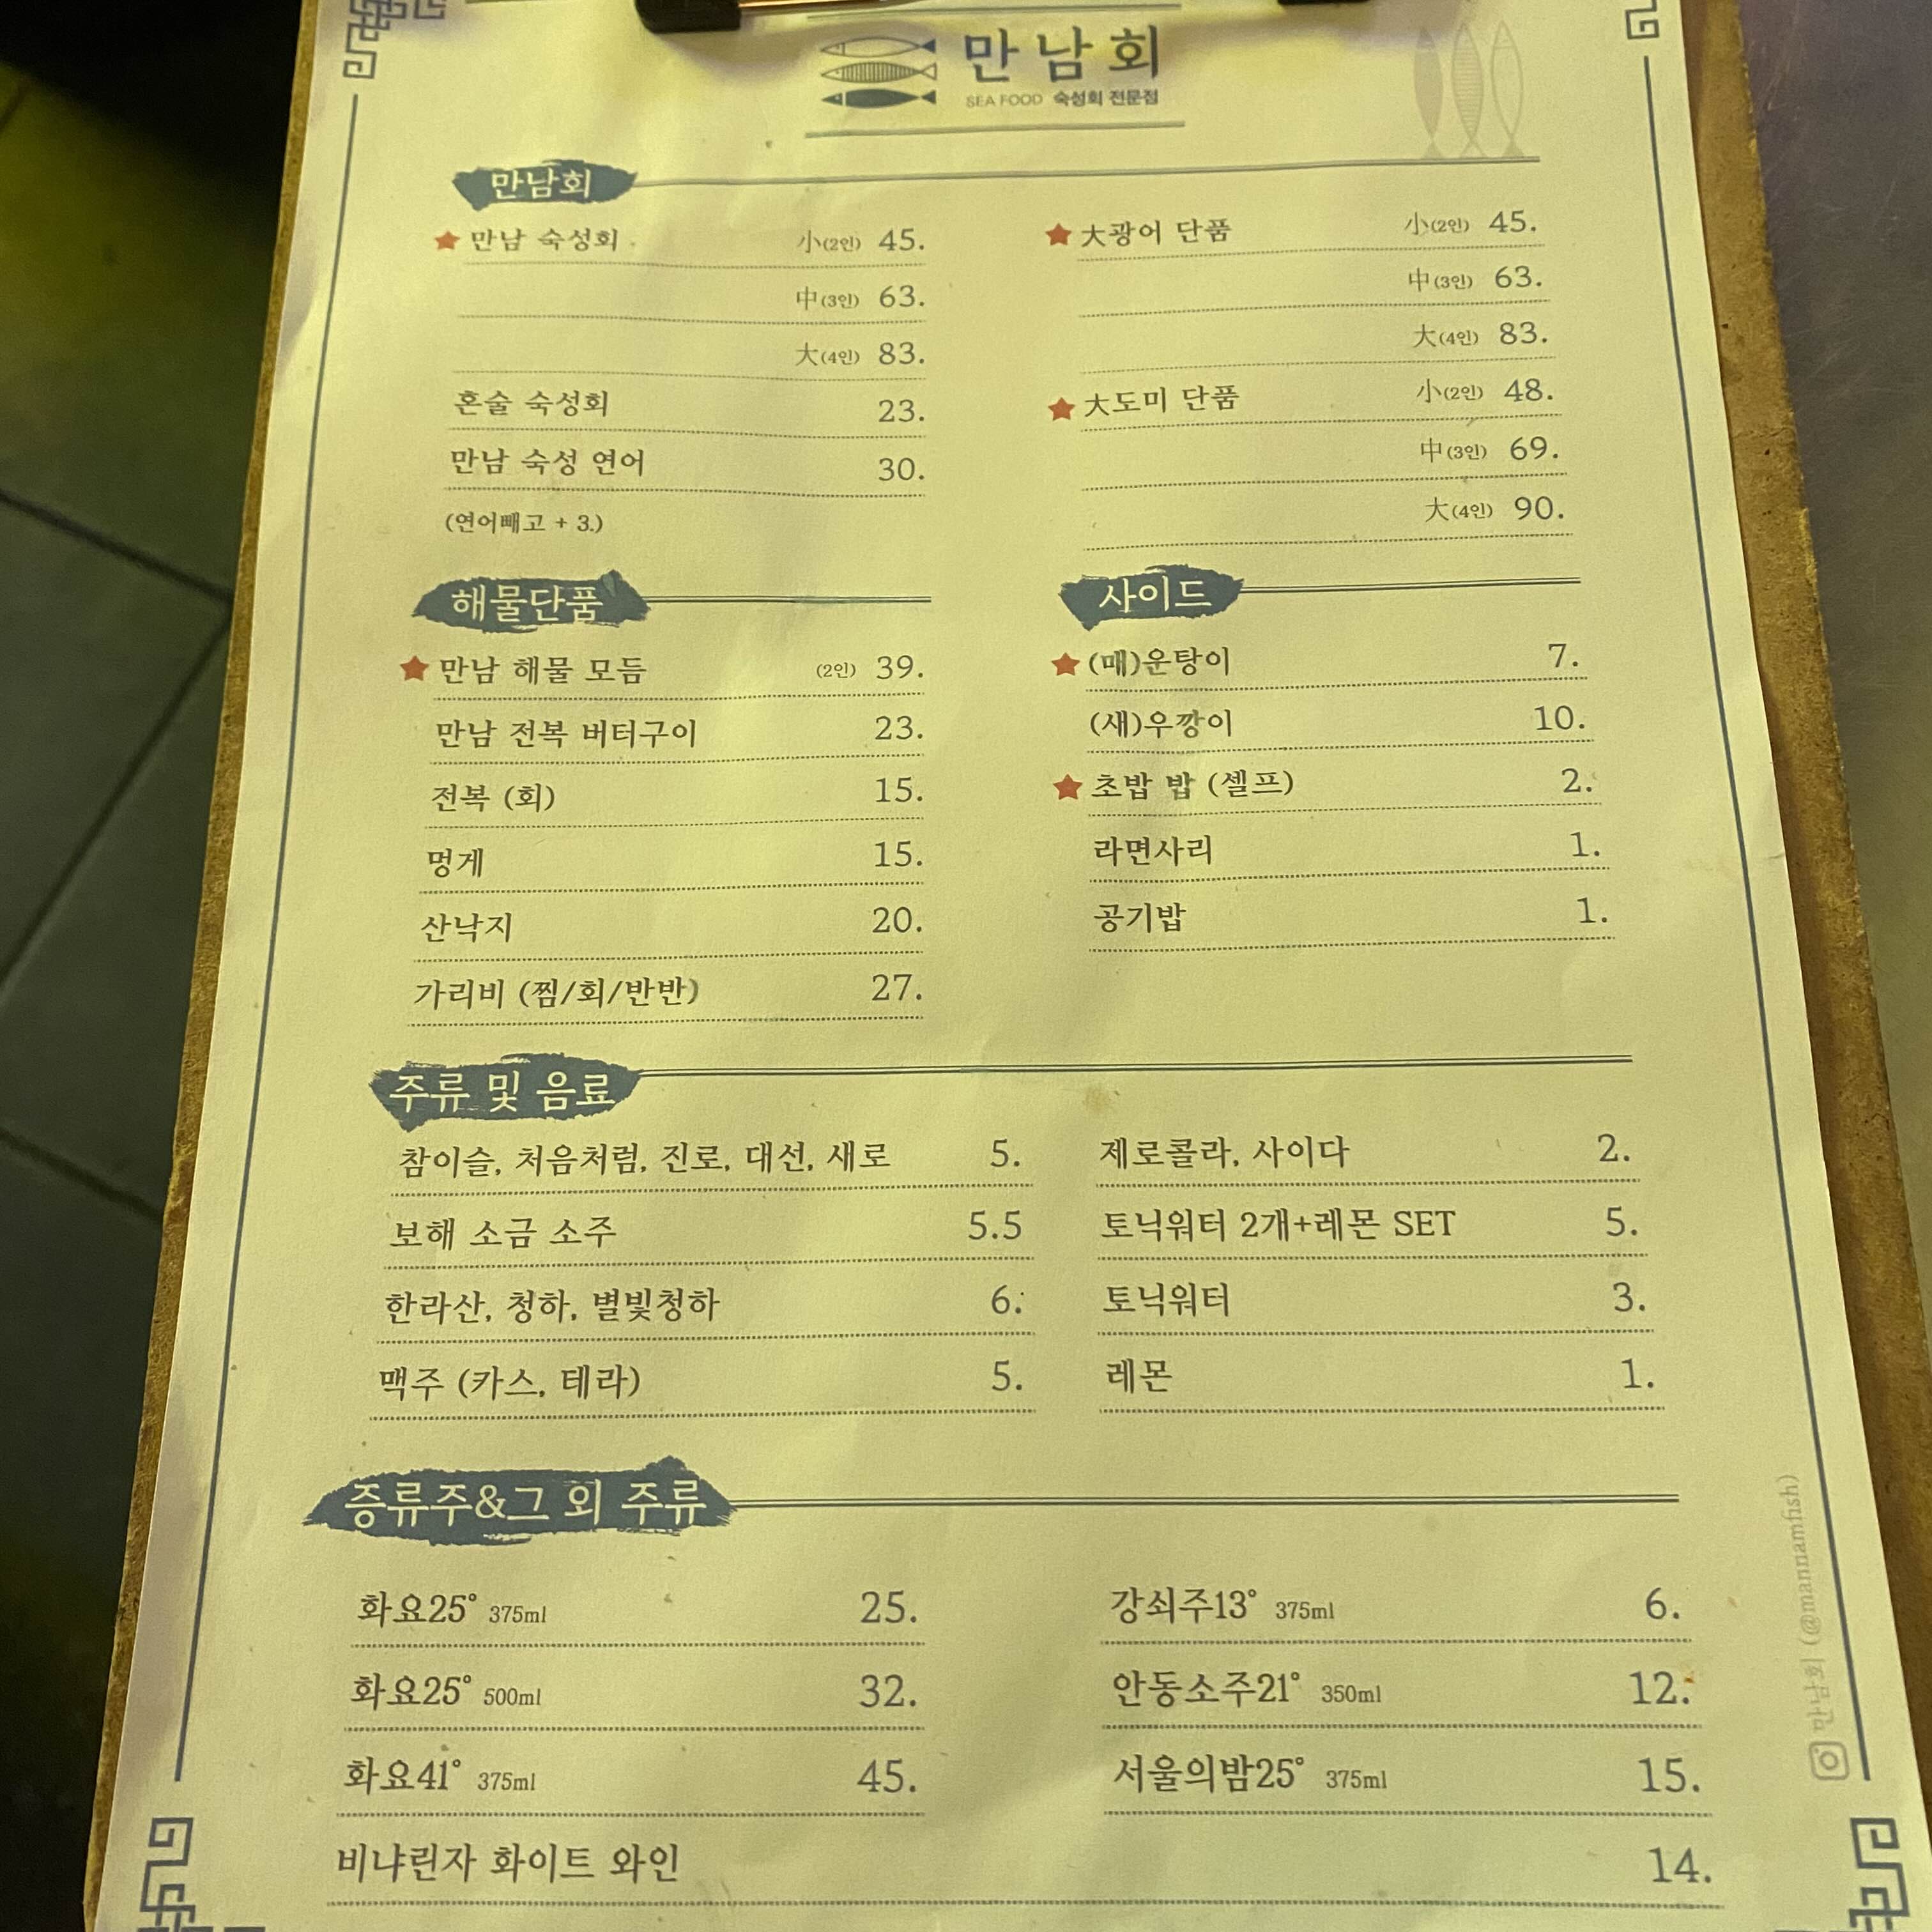 만남회
SEA FOOD 숙성회 전문점
만남회
★ 만남 숙성회 小(2인) 45.
中(3인) 63.
大(4인) 83.
혼술 숙성회 23.
만남 숙성 연어 30.
(연어빼고 + 3.)
★ 大광어 단품 小(2인) 45.
中(3인) 63.
大(4인) 83.
★ 大도미 단품 小(2인) 48.
中(3인) 69.
大(4인) 90.
해물단품
★ 만남 해물 모듬 (2인) 39.
만남 전복 버터구이 23.
전복 (회) 15.
멍게 15.
산낙지 20.
가리비 (찜/회/반반) 27.
사이드
★ (매)운탕이 7.
(새)우깡이 10.
★ 초밥 밥 (셀프) 2.
라면사리 1.
공기밥 1.
주류 및 음료
참이슬, 처음처럼, 진로, 대선, 새로 5.
보해 소금 소주 5.5
한라산, 청하, 별빛청하 6.
맥주 (카스, 테라) 5.
제로콜라, 사이다 2.
토닉워터 2개+레몬 SET 5.
토닉워터 3.
레몬 1.
증류주&그 외 주류
화요25° 375ml 25.
화요25° 500ml 32.
화요41° 375ml 45.
비냐린자 화이트 와인 14.
강쇠주13° 375ml 6.
안동소주21° 350ml 12.
서울의밤25° 375ml 15.
만남회 (@mannamfish)